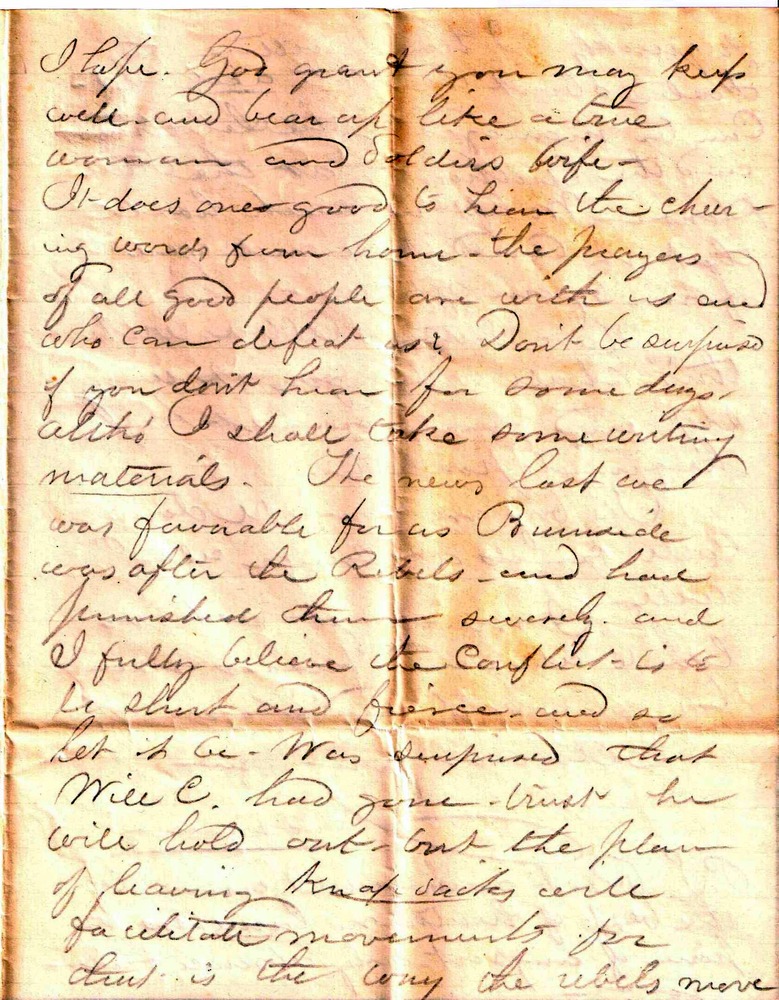 I hope. God grant you may keep
well and bear up like a true
woman and Soldiers Wife-
It does ones good to hear the cheer-
ing words from home - the prayers
of all good people are with us and
who can defeat us? Don't be surprised
if you don't hear for some days.
altho' I shall take some writing
materials. The news last eve
was favorable for us Burnside
was after the Rebels - and had
punished them severely. and
I fully believe the Conflict is to
be short and fierce - and so
let it be - Was surprised that
Will C. had gone - trust he
will hold out - but the plan
of leaving Knapsacks will
facilitate movements for
that is the way the rebels move